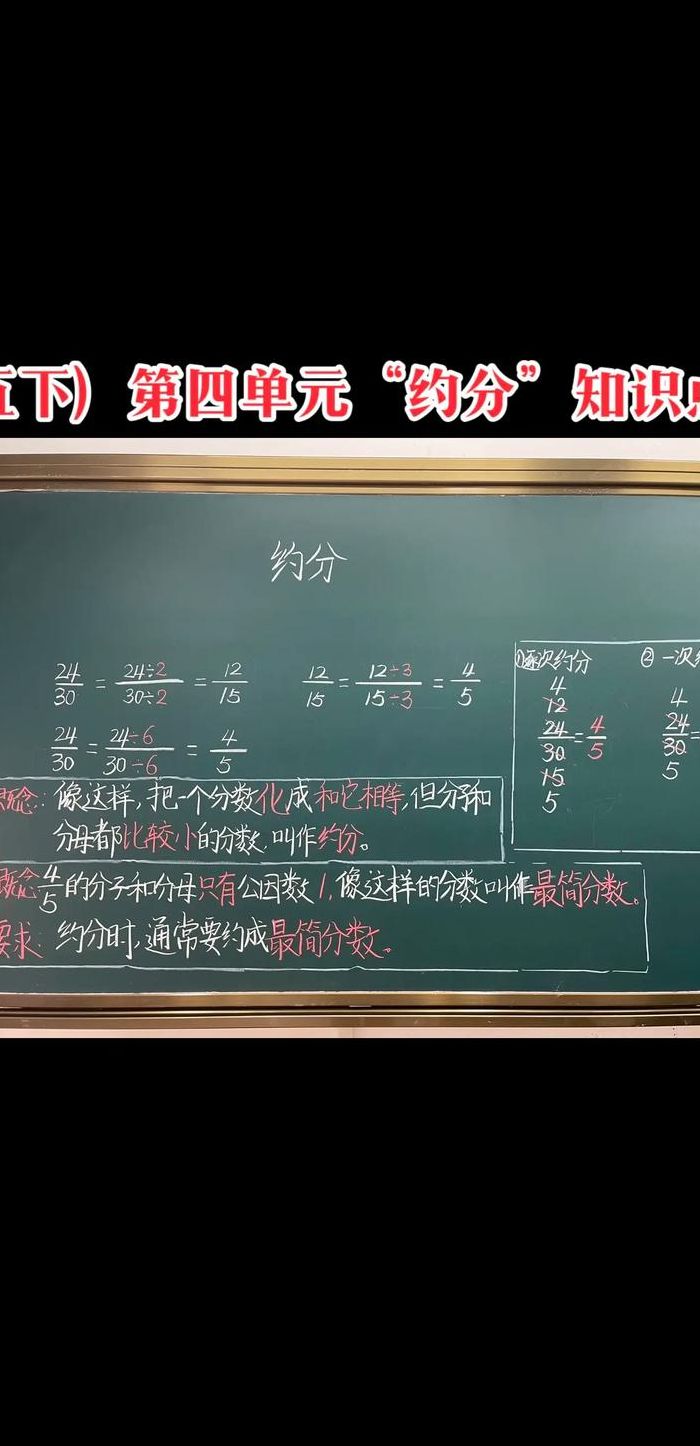 五下) 第四单元“约分”知识点
约分
24/30 = 24÷2/30÷2 = 12/15 12/15 = 12÷3/15÷3 = 4/5
24/30 = 24÷6/30÷6 = 4/5
概念: 像这样,把一个分数化成和它相等,但分子和
分母都比较小的分数,叫作约分。
概念 4/5的分子和分母只有公因数1,像这样的分数叫作最简分数。
要求: 约分时,通常要约成最简分数。
①逐次约分
4
12
24/30 = 4/5
15
5
② 一次约
4
24/30 =
5